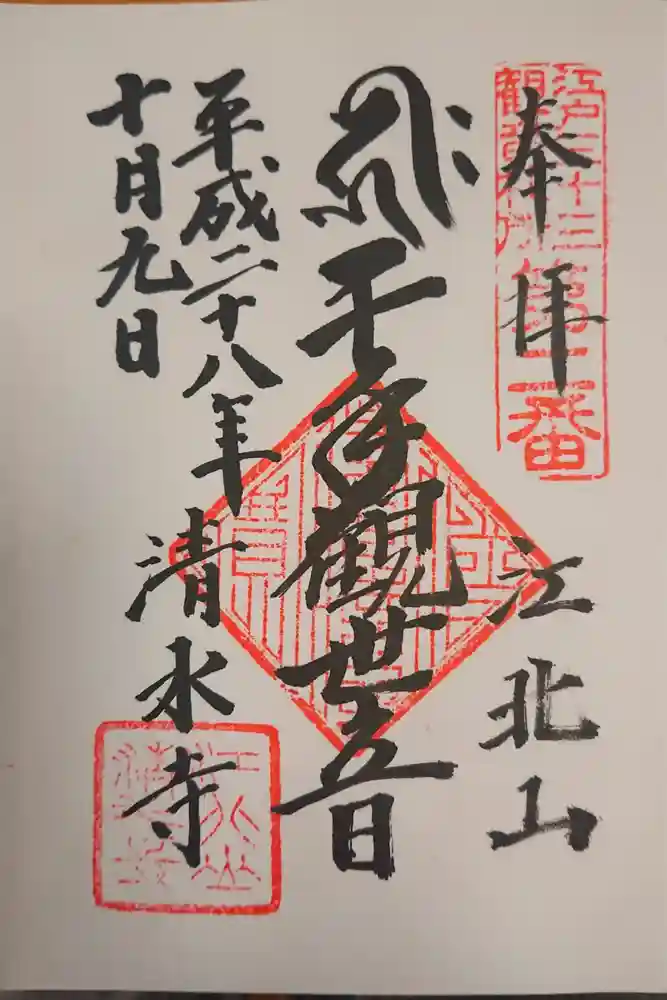 奉拝
江戸三十三
観音札所
第二番
江北山
千手観世音
平成二十八年
十月九日
清水寺